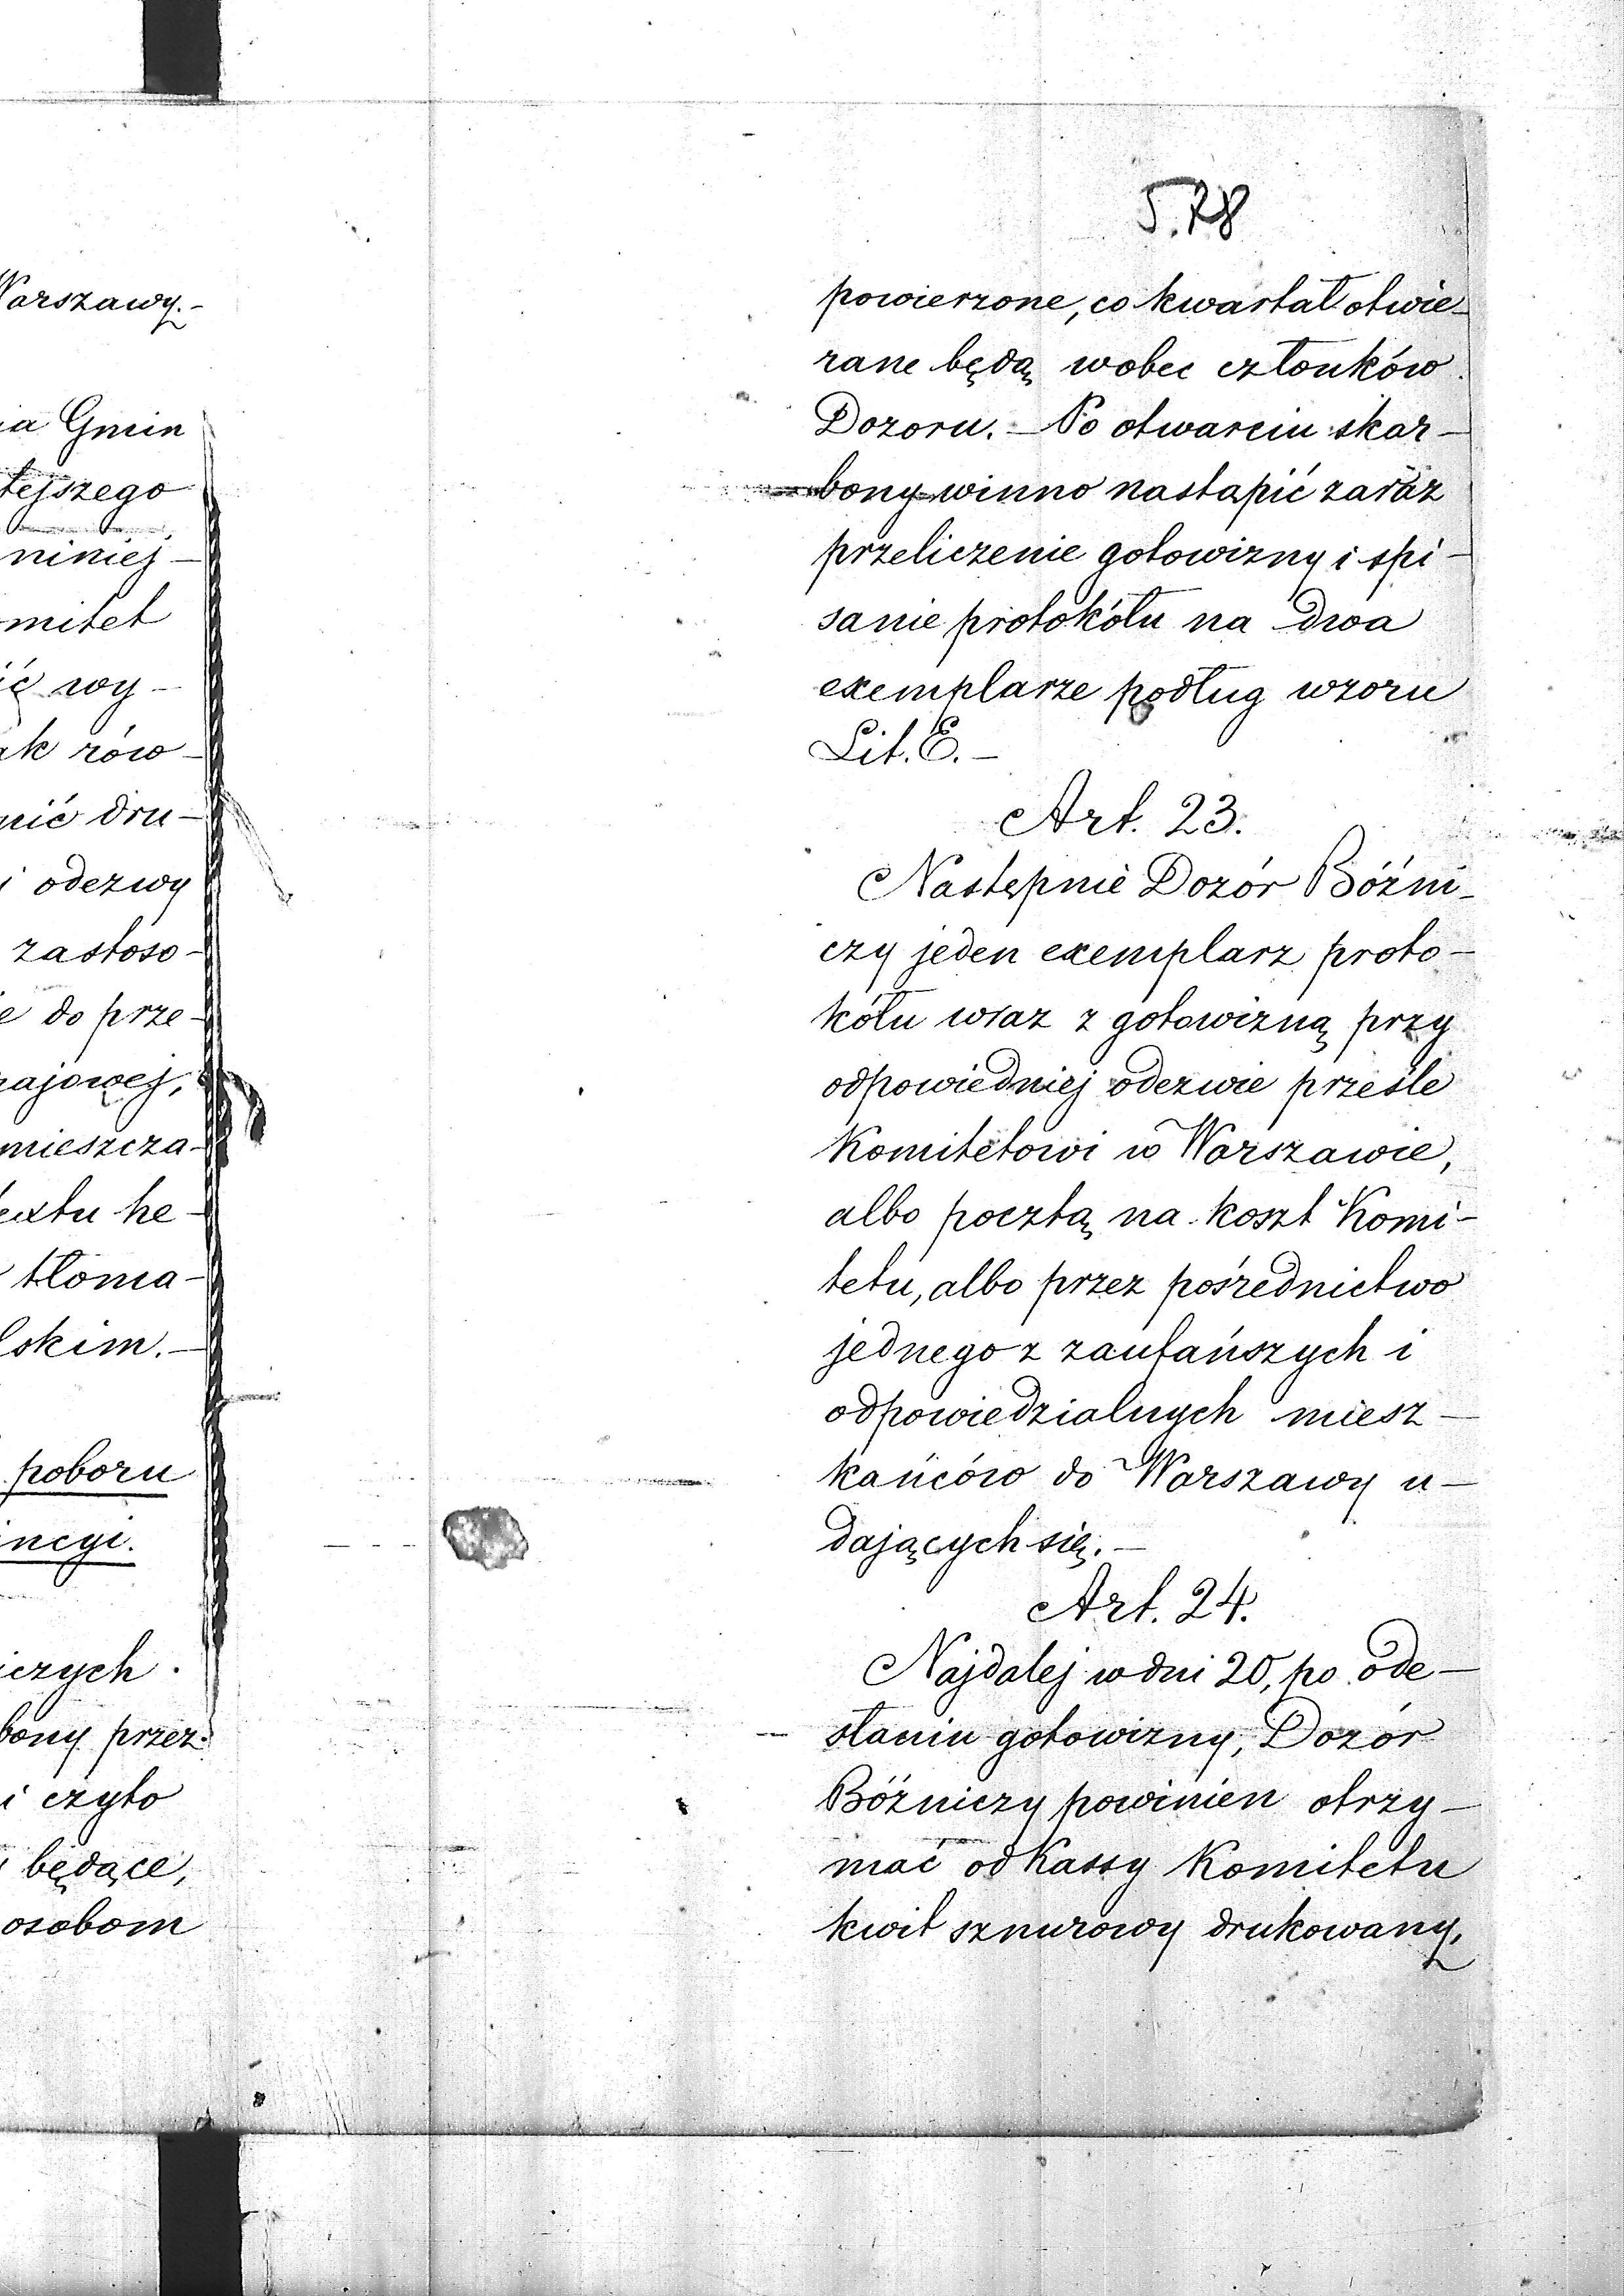 Warszawy.-
ia Gmin
tejszego
niniej-
mitet
ić wy-
ak rów-
nić dru-
i odezwy
zastoso-
e do prze-
rajowej,
mieszcza-
textu he-
tłoma-
lskim.-
poboru
incyi.
iczych
bony przez
i czyto
będące,
osobom
578
powierzone, co kwartał otwie-
rane będą wobec członków
Dozoru. - Po otwarciu skar-
bony winno nastąpić zaraz
przeliczenie gotowizny i spi-
sanie protokółu na dwa
exemplarze podług wzoru
Lit. E. -
Art. 23.
Następnie Dozór Bóźni-
czy jeden exemplarz proto-
kółu wraz z gotowizną przy
odpowiedniej odezwie prześle
Komitetowi w Warszawie,
albo pocztą na koszt Komi-
tetu, albo przez pośrednictwo
jednego z zaufańszych i
odpowiedzialnych miesz-
kańców do Warszawy u-
dających się. -
Art. 24.
Najdalej w dni 20, po ode-
słaniu gotowizny, Dozór
Bóźniczy powinien otrzy-
mać od Kassy Komitetu
kwit sznurowy drukowany,